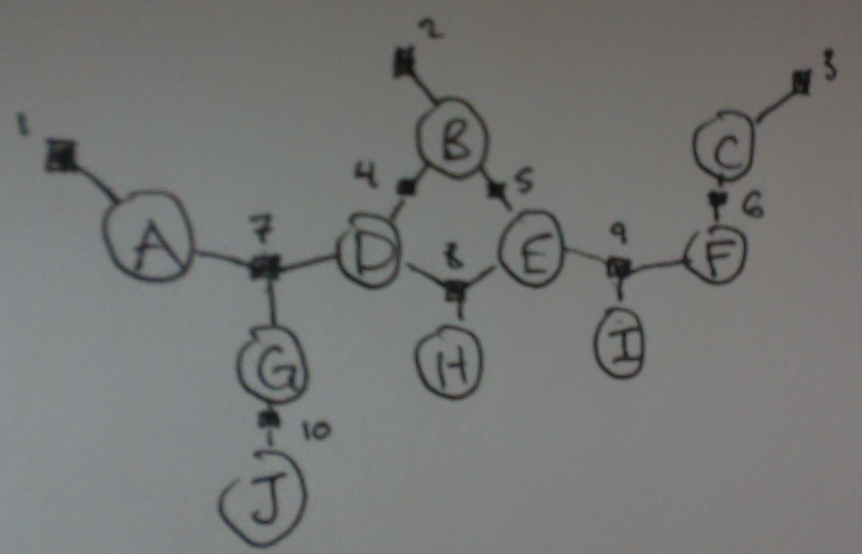 2
3
1
B
C
4
5
6
A
7
D
8
E
9
F
G
H
I
10
J